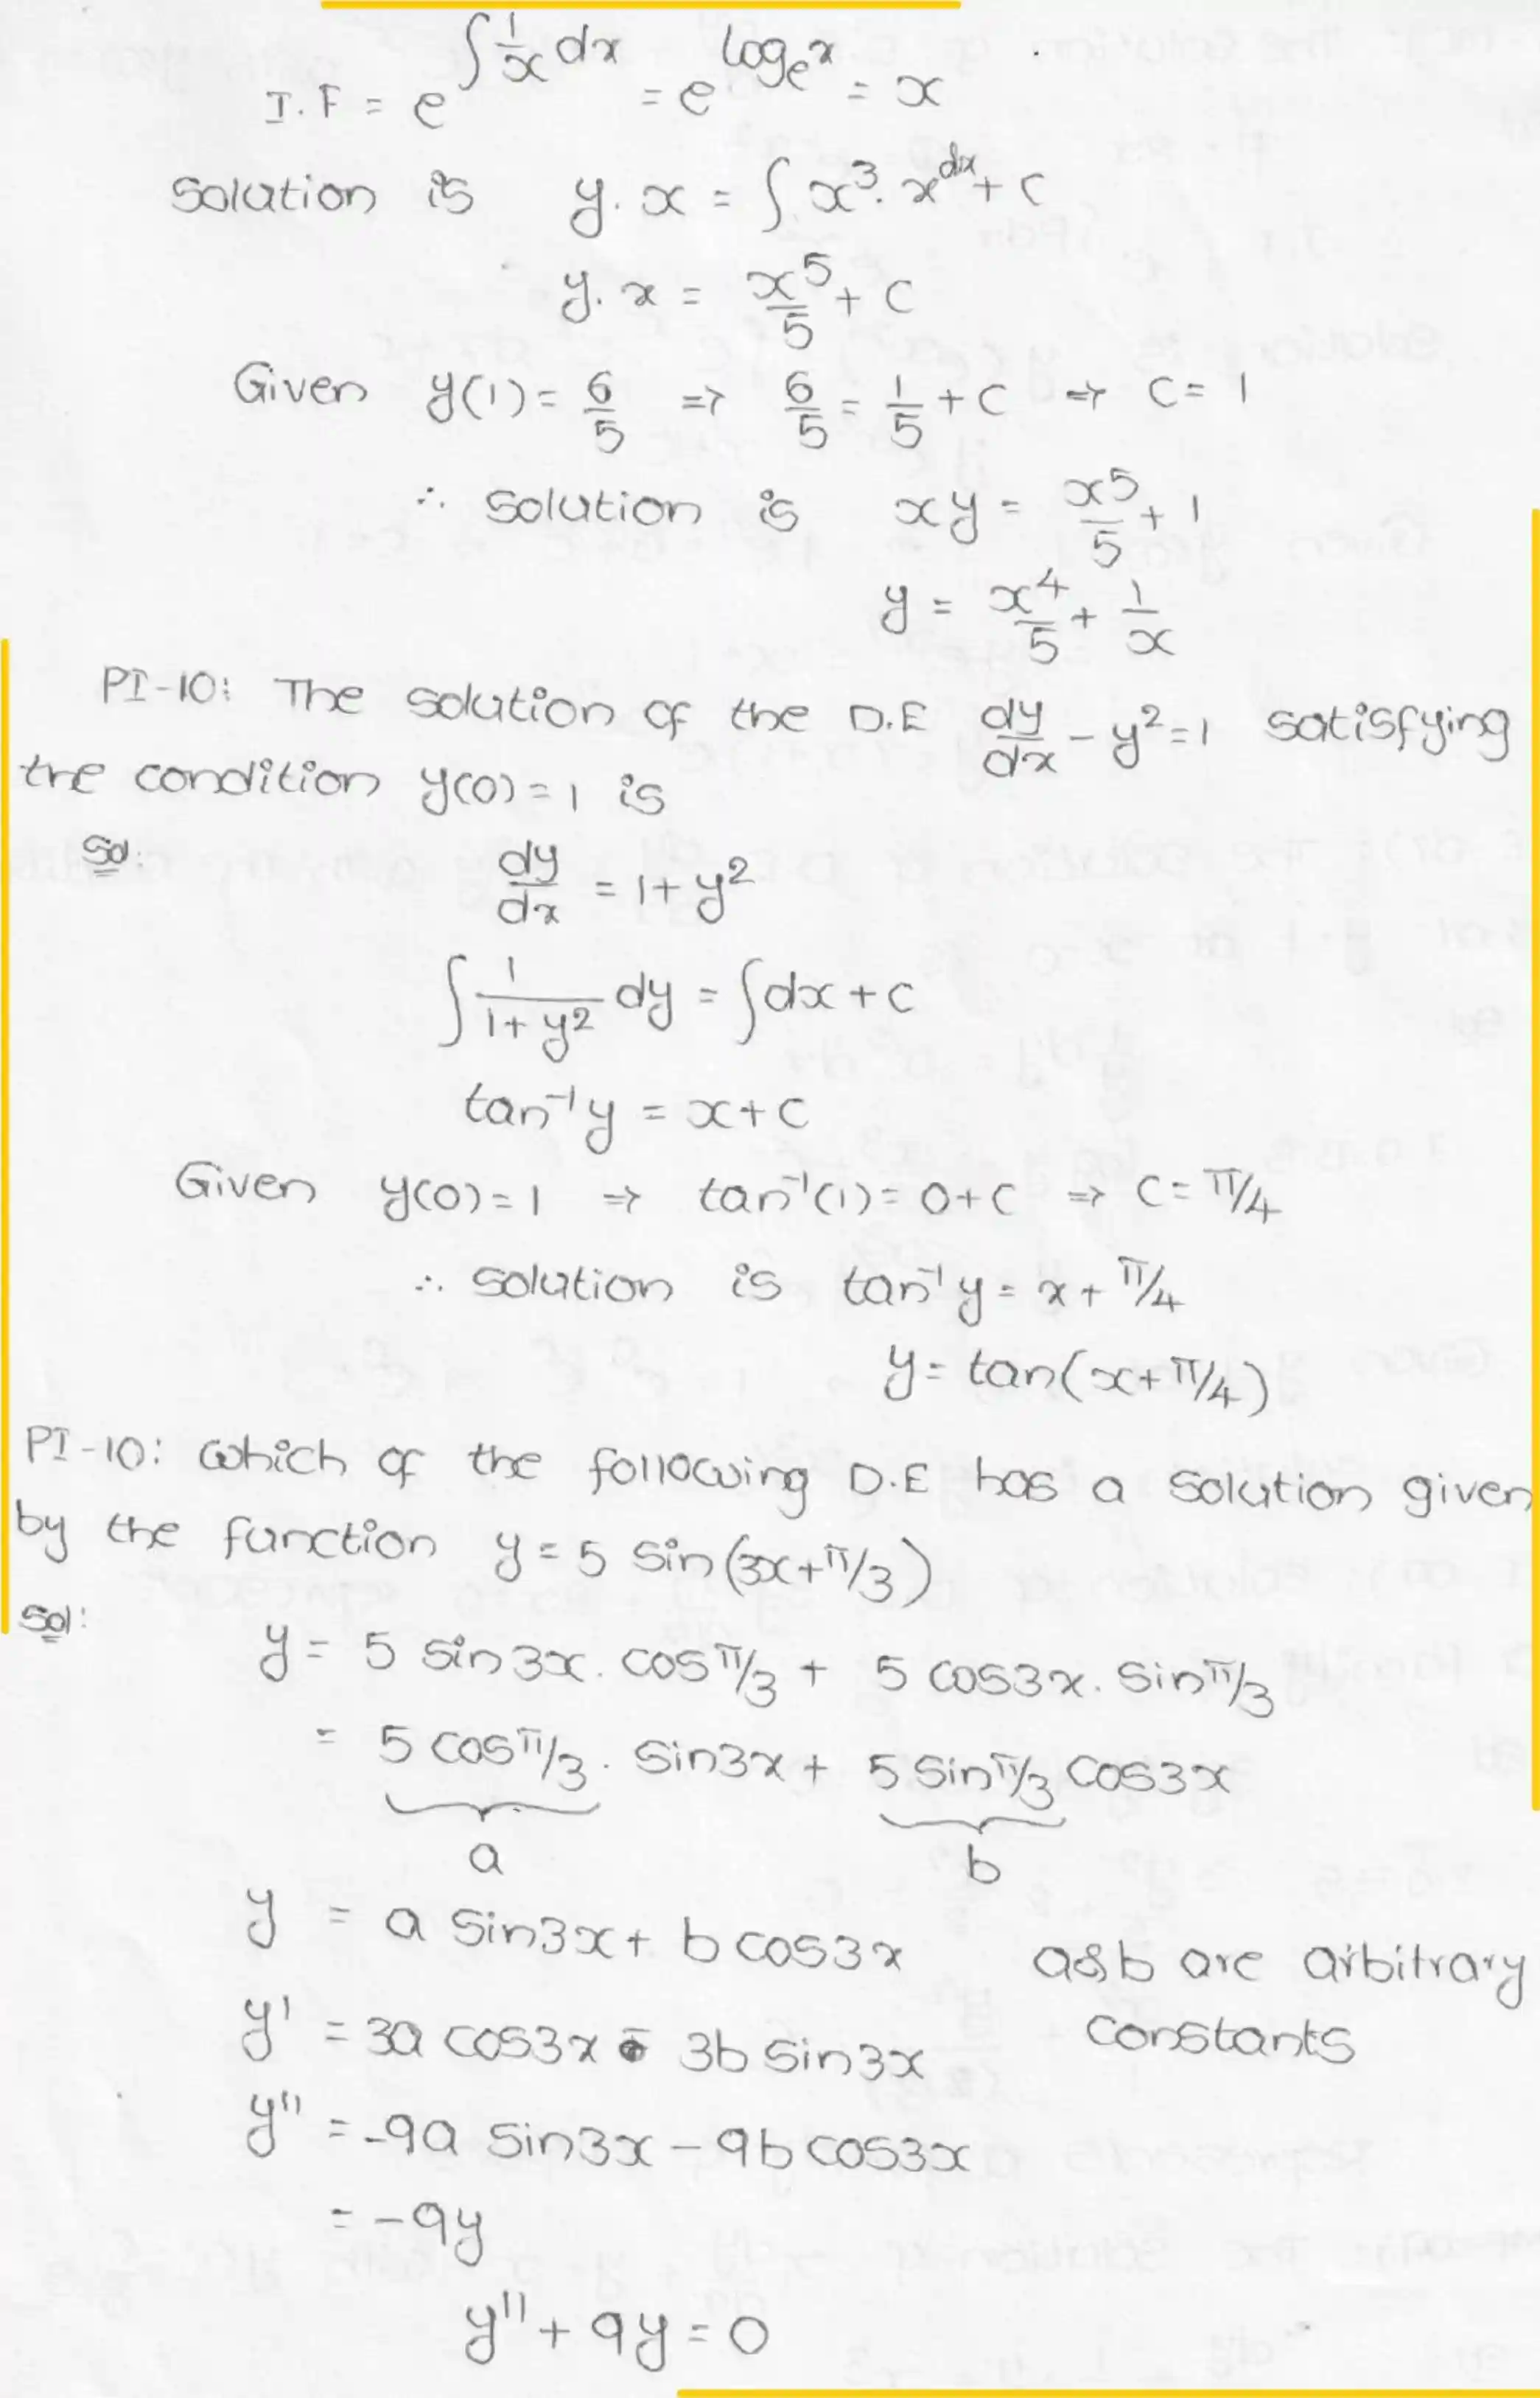 I.F = e^{∫ 1/x dx} = e^{log_e x} = x
Solution is y·x = ∫ x³·x dx + c
y·x = x⁵/5 + c
Given y(1) = 6/5 ⇒ 6/5 = 1/5 + c ⇒ c = 1
∴ solution is xy = x⁵/5 + 1
y = x⁴/5 + 1/x
PI-10: The solution of the D.E dy/dx - y² = 1 satisfying
the condition y(0) = 1 is
Sol:
dy/dx = 1 + y²
∫ 1/(1+y²) dy = ∫dx + c
tan⁻¹y = x + c
Given y(0) = 1 ⇒ tan⁻¹(1) = 0 + c ⇒ c = π/4
∴ solution is tan⁻¹y = x + π/4
y = tan(x + π/4)
PI-10: Which of the following D.E has a solution given
by the function y = 5 sin(3x + π/3)
Sol:
y = 5 sin3x. cosπ/3 + 5 cos3x. sinπ/3
= 5 cosπ/3. sin3x + 5 sinπ/3 cos3x
a b
y = a sin3x + b cos3x a&b are arbitrary
constants
y' = 3a cos3x - 3b sin3x
y'' = -9a sin3x - 9b cos3x
= -9y
y'' + 9y = 0